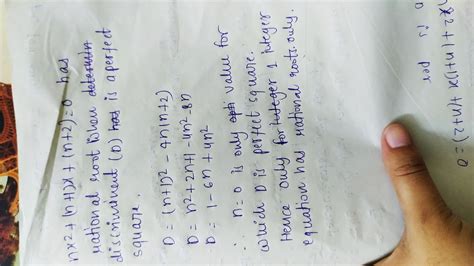 nx²+(n+1)x+(n+2)=0 has
rational root when
discriminant (D) is a perfect
square.
D = (n+1)² - 4n(n+2)
D = n²+2n+1-4n²-8n
D = 1-6n+4n²
∴ n=0 is only value for
which D is perfect square.
Hence only for integer 1 integer
equation has rational roots only.
x2+(n+1)x+(n+2)=0
is per